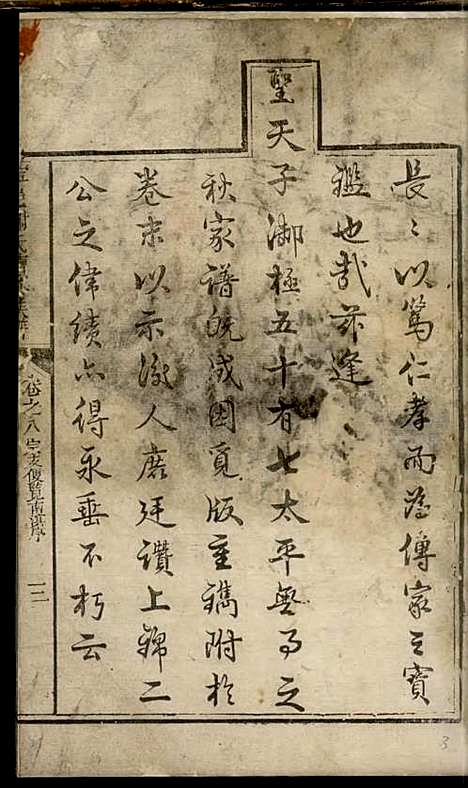 長〻以篤仁孝而為傳家之寶
鑑也哉茲逢
聖天子御極五十有七太平無事之
秋家譜既成因覓版重鐫附於
卷末以示後人庶廷讚上錦二
公之偉績亦得永垂不朽云
卷之八 便覽 序
3